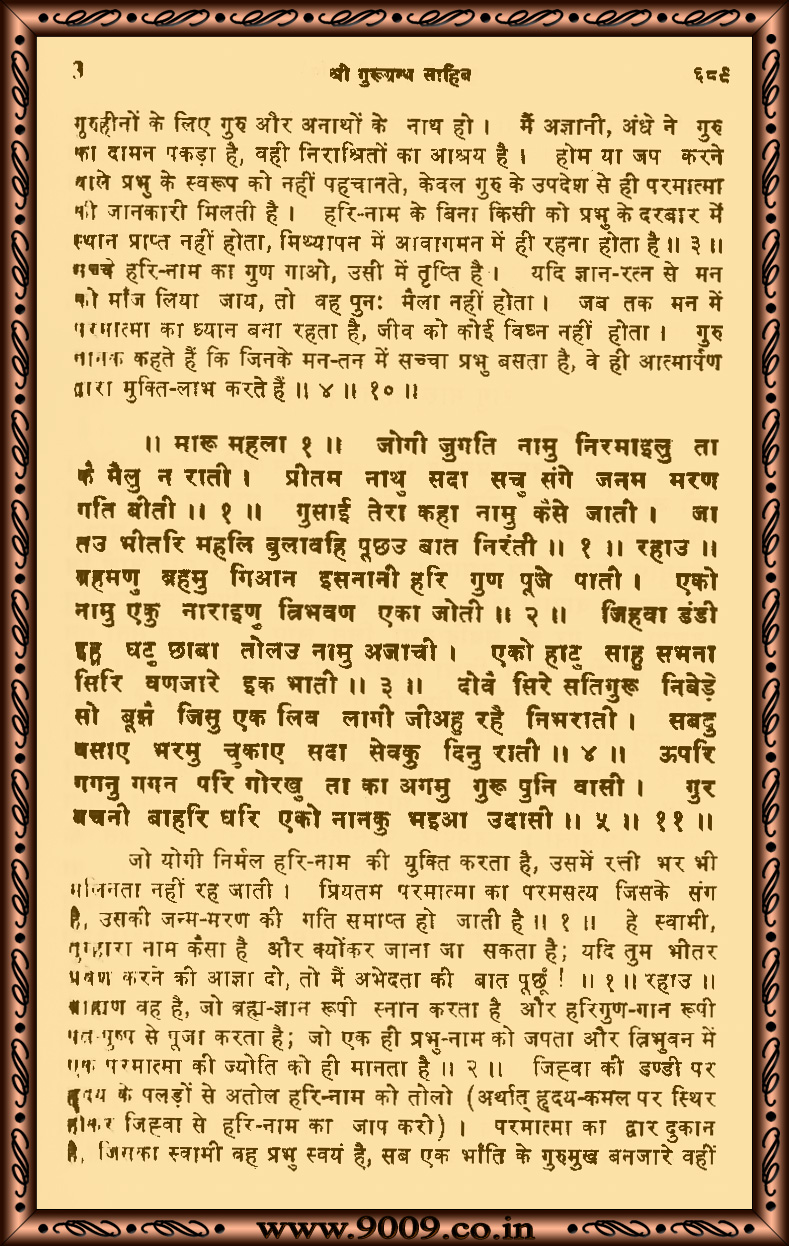 श्री गुरूग्रन्थ साहिब ६८९
गुरुहीनों के लिए गुरु और अनाथों के नाथ हो । मैं अज्ञानी, अंधे ने गुरु
का दामन पकड़ा है, वही निराश्रितों का आश्रय है । होम या जप करने
वाले प्रभु के स्वरूप को नहीं पहचानते, केवल गुरु के उपदेश से ही परमात्मा
की जानकारी मिलती है । हरि-नाम के बिना किसी को प्रभु के दरबार में
स्थान प्राप्त नहीं होता, मिथ्यापन में आवागमन में ही रहना होता है ॥ ३ ॥
सच्चे हरि-नाम का गुण गाओ, उसी में तृप्ति है । यदि ज्ञान-रत्न से मन
को माँज लिया जाय, तो वह पुनः मैला नहीं होता । जब तक मन में
परमात्मा का ध्यान बना रहता है, जीव को कोई विघ्न नहीं होता । गुरु
नानक कहते हैं कि जिनके मन-तन में सच्चा प्रभु बसता है, वे ही आत्मार्पण
द्वारा मुक्ति-लाभ करते हैं ॥ ४ ॥ १० ॥
॥ मारू महला १ ॥ जोगी जुगति नामु निरमाइलु ता
कै मैलु न राती । प्रीतम नाथु सदा सचु संगे जनम मरण
गति बीती ॥ १ ॥ गुसाई तेरा कहा नामु कैसे जाती । जा
तउ भीतरि महलि बुलावहि पूछउ बात निरंती ॥ १ ॥ रहाउ ॥
ब्रहमणु ब्रहमु गिआन इसनानी हरि गुण पूजे पाती । एको
नामु एकु नाराइणु त्रिभवण एका जोती ॥ २ ॥ जिहवा डंडी
इहु घटु छाबा तोलउ नामु अजाची । एको हाटु साहु सभना
सिरि वणजारे इक भाती ॥ ३ ॥ दोवै सिरे सतिगुरू निबेड़े
सो बूझै जिसु एक लिव लागी जीअहु रहै निभराती । सबदु
वसाए भरमु चुकाए सदा सेवकु दिनु राती ॥ ४ ॥ ऊपरि
गगनु गगन परि गोरखु ता का अगमु गुरू पुनि वासी । गुर
बचनी बाहरि घरि एको नानकु भइआ उदासी ॥ ५ ॥ ११ ॥
जो योगी निर्मल हरि-नाम की युक्ति करता है, उसमें रत्ती भर भी
मलिनता नहीं रह जाती । प्रियतम परमात्मा का परमसत्य जिसके संग
है, उसकी जन्म-मरण की गति समाप्त हो जाती है ॥ १ ॥ हे स्वामी,
तुम्हारा नाम कैसा है और क्योंकर जाना जा सकता है; यदि तुम भीतर
प्रवेश करने की आज्ञा दो, तो मैं अभेदता की बात पूछूं ! ॥ १ ॥ रहाउ ॥
ब्राह्मण वह है, जो ब्रह्म-ज्ञान रूपी स्नान करता है और हरिगुण-गान रूपी
पत्र-पुष्प से पूजा करता है; जो एक ही प्रभु-नाम को जपता और त्रिभुवन में
एक परमात्मा की ज्योति को ही मानता है ॥ २ ॥ जिह्वा की डण्डी पर
हृदय के पलड़ों से अतोल हरि-नाम को तोलो (अर्थात् हृदय-कमल पर स्थिर
होकर जिह्वा से हरि-नाम का जाप करो) । परमात्मा का द्वार दुकान
है, जिसका स्वामी वह प्रभु स्वयं है, सब एक भाँति के गुरुमुख बनजारे वहीं
www.9009.co.in